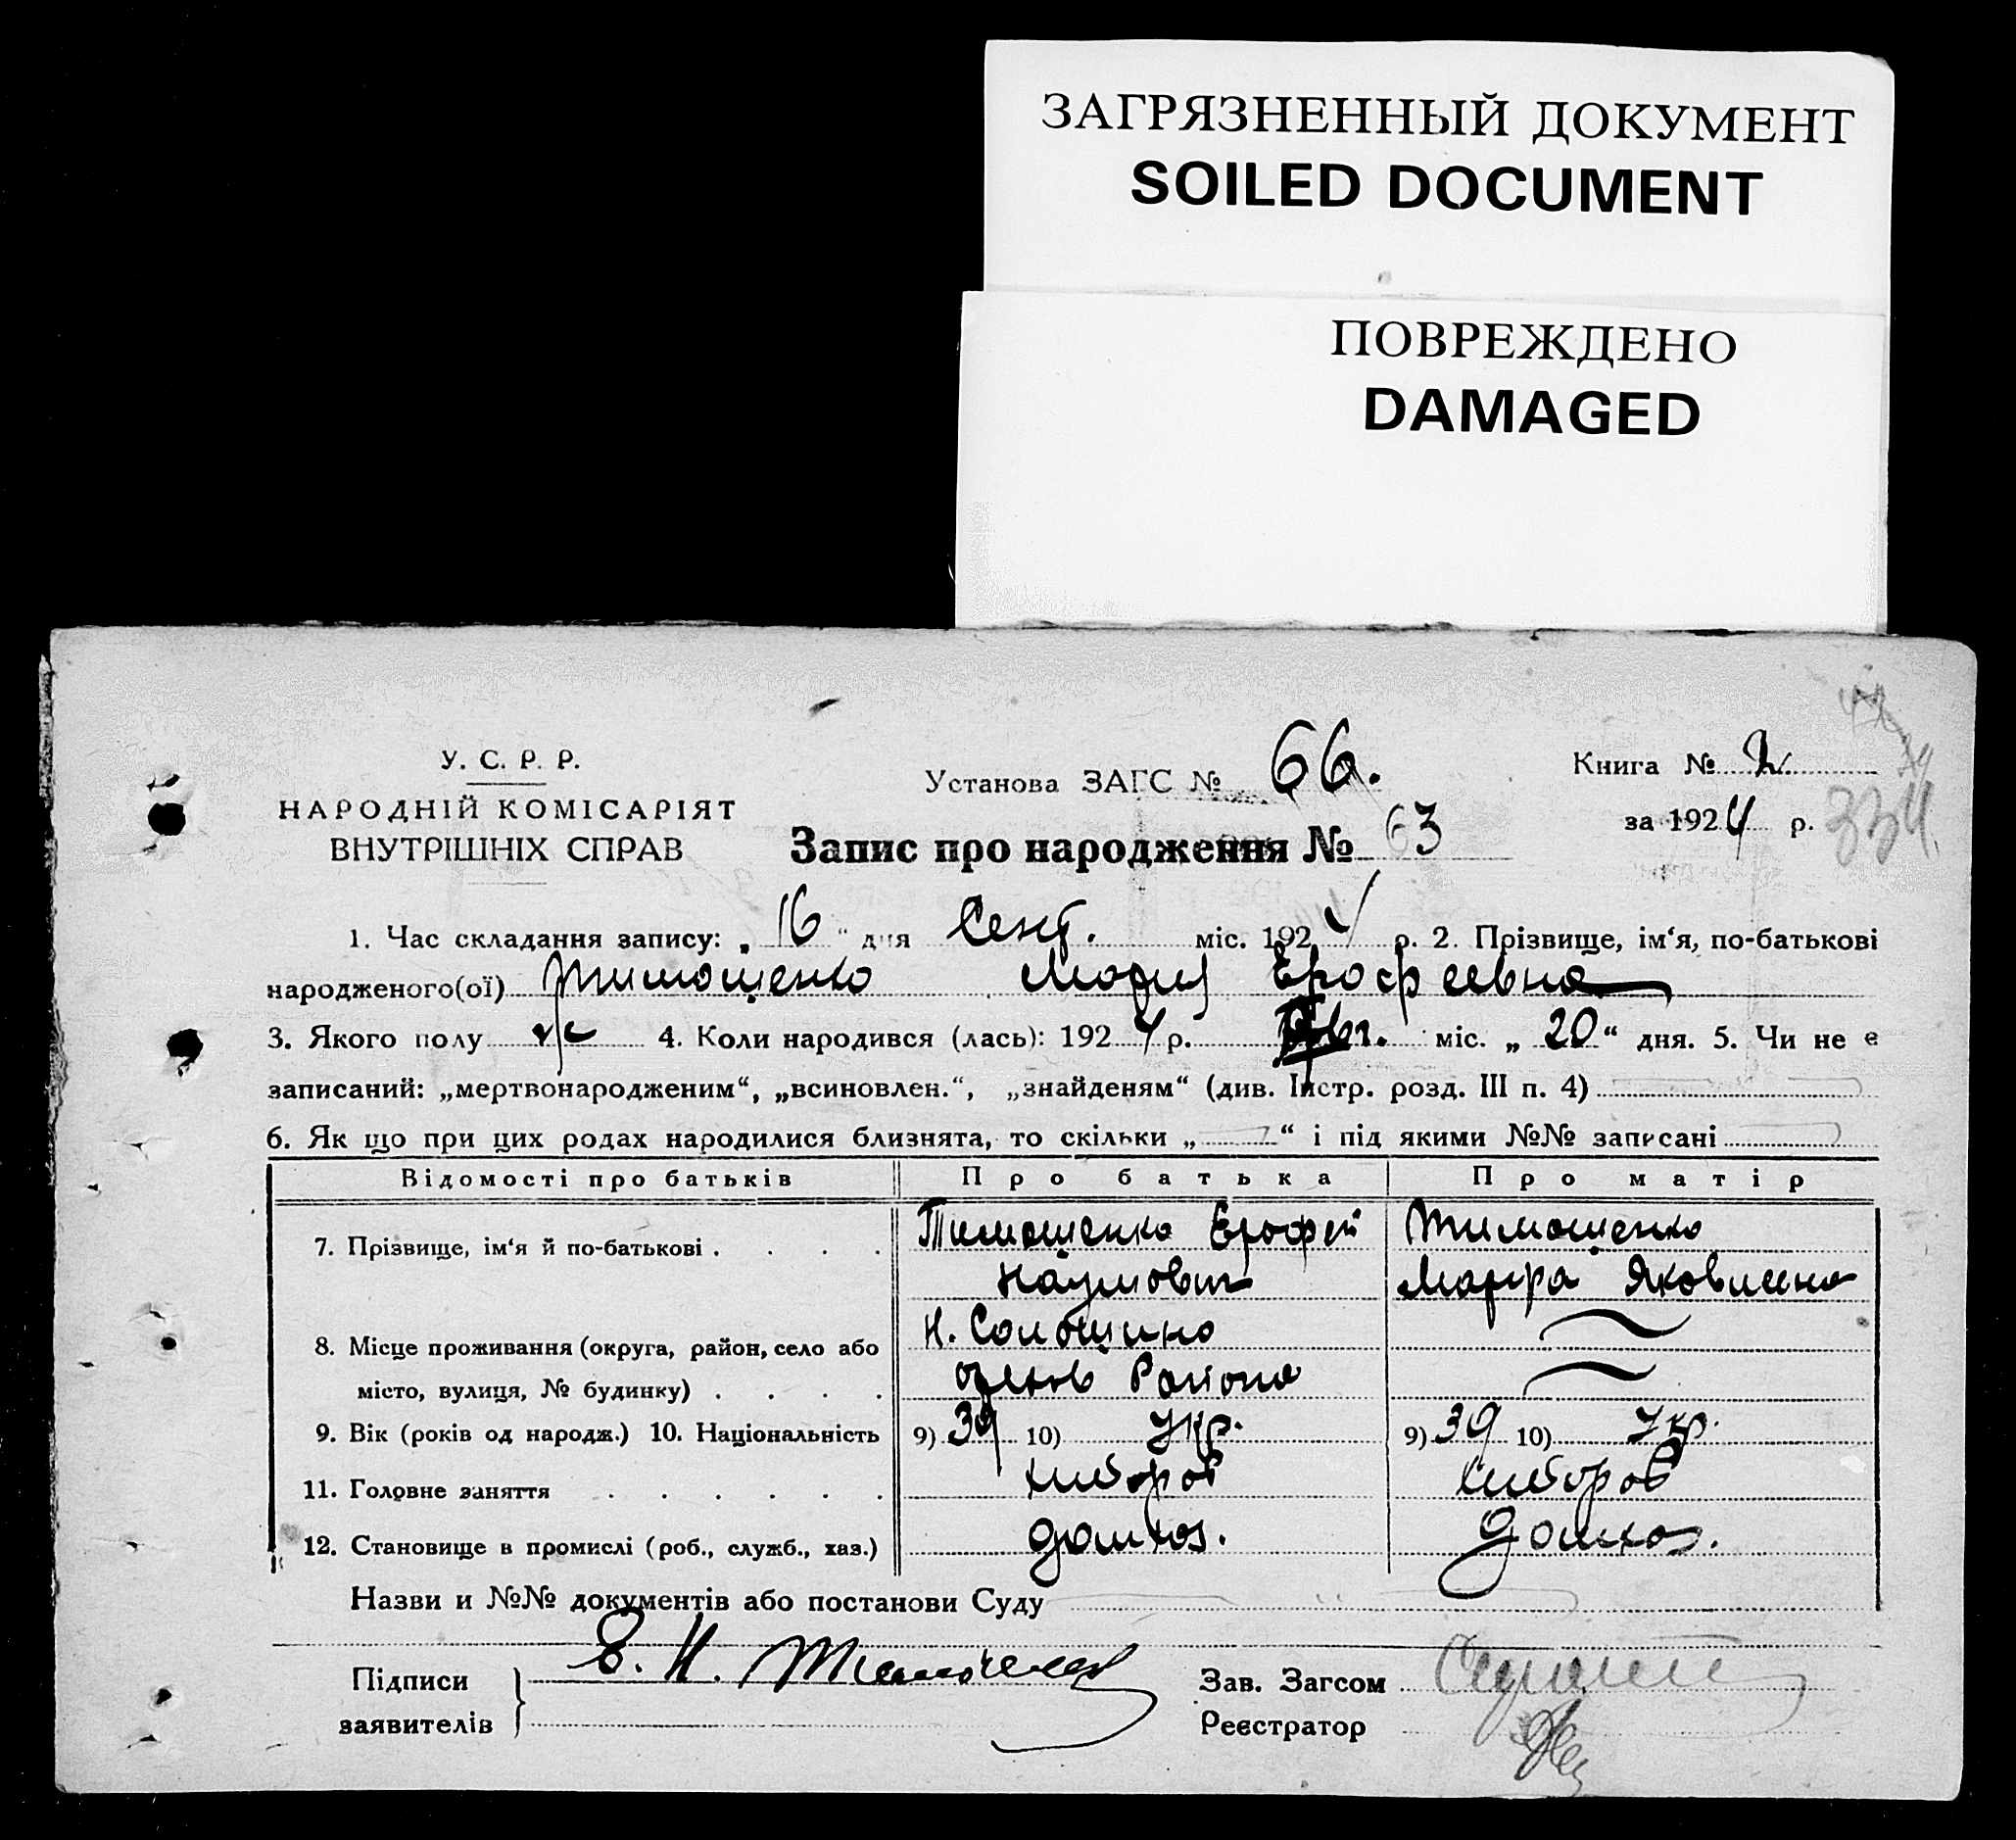 ЗАГРЯЗНЕННЫЙ ДОКУМЕНТ
SOILED DOCUMENT
ПОВРЕЖДЕНО
DAMAGED
У. С. Р. Р.
НАРОДНІЙ КОМІСАРІЯТ
ВНУТРІШНІХ СПРАВ
Установа ЗАГС № 66.
Книга № 2
за 1924 р.
334
Запис про народження № 63
1. Час складання запису: „16“ дня Сент. міс. 1924 р. 2. Прізвище, ім‘я, по-батькові
народженого(ої) Тимошенко Мария Ерофеевна
3. Якого полу ж 4. Коли народився (лась): 1924 р. міс. „20“ дня. 5. Чи не є
записаний: „мертвонародженим“, „всиновлен.“, „знайденям“ (див. Інстр. розд. III п. 4)
6. Як що при цих родах народилися близнята, то скільки „ “ і під якими №№ записані
Відомості про батьків Про батька Про матір
7. Прізвище, ім‘я й по-батькові . . . . Тимошенко Ерофей Тимошенко
Наумович Марфа Яковлевна
8. Місце проживання (округа, район, село або Н. Солошино
місто, вулиця, № будинку) . . . . Района
9. Вік (років од народж.) 10. Національність 9) 39 10) Укр. 9) 39 10) Укр.
11. Головне заняття . . . . . . хлібороб хлібороб
12. Становище в промислі (роб., служб., хаз.) домхоз. домхоз.
Назви и №№ документів або постанови Суду
Підписи Е. Н. Тимошенко Зав. Загсом
заявителів Реєстратор